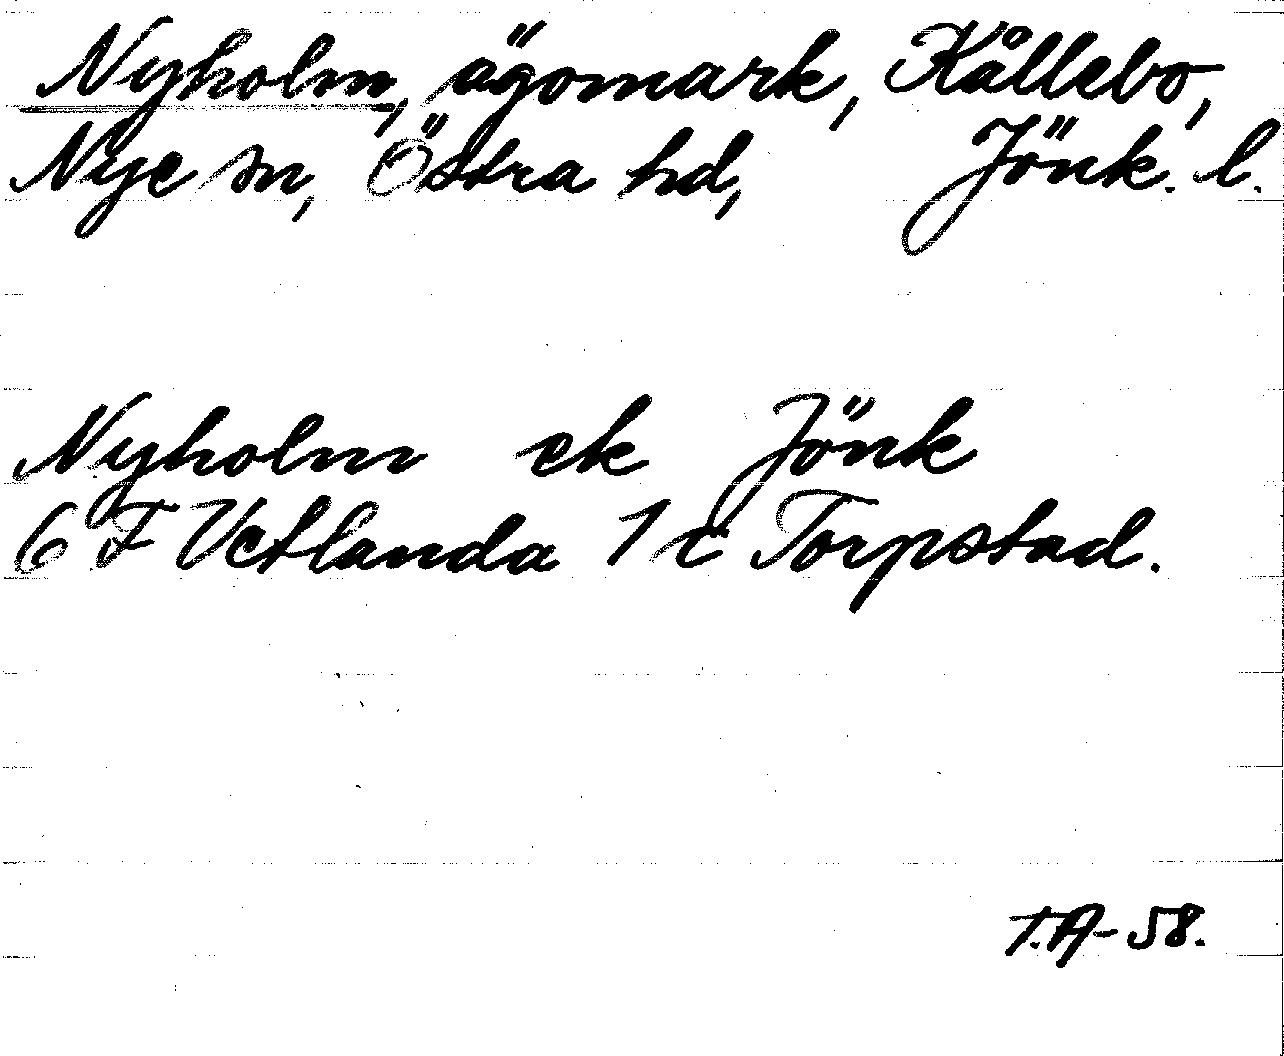 Nyholm, ägomark, Kållebo,
Nye sn, Östra hd, Jönk. l.
Nyholm ek Jönk
6 F Vetlanda 1 c Torpstad.
T.A-58.